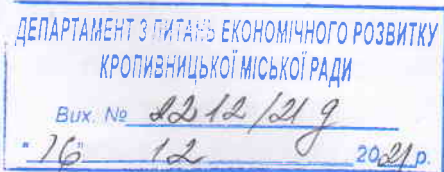 ДЕПАРТАМЕНТ З ПИТАНЬ ЕКОНОМІЧНОГО РОЗВИТКУ
КРОПИВНИЦЬКОЇ МІСЬКОЇ РАДИ
Вих. № 2212/21 д
"16" 12 2021 р.